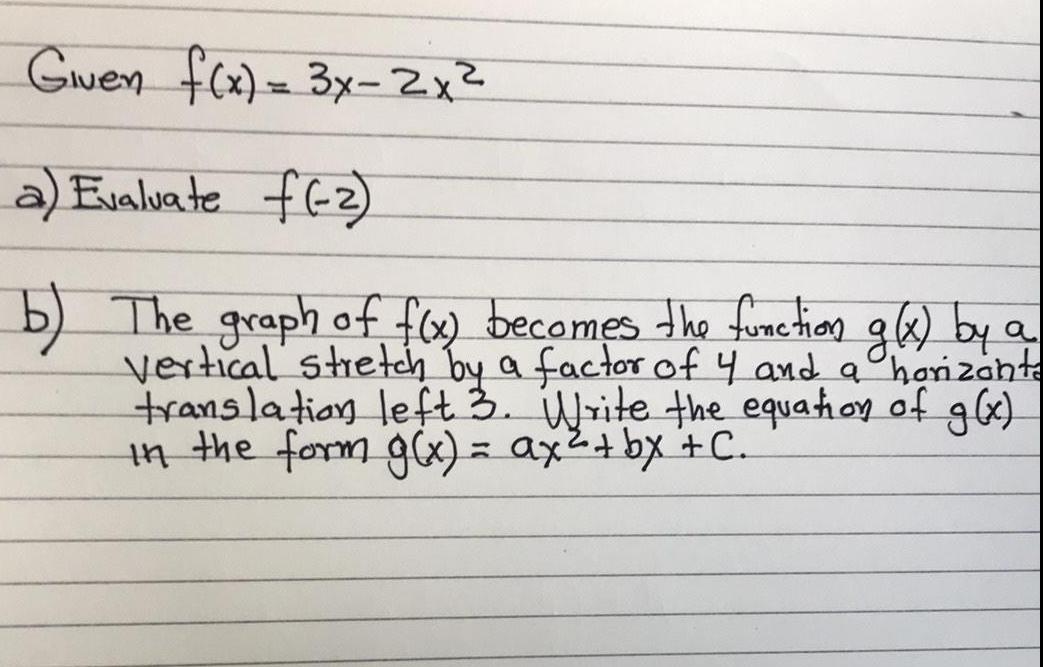 Given f(x) = 3x - 2x²
a) Evaluate f(-2)
b) The graph of f(x) becomes the function g(x) by a
vertical stretch by a factor of 4 and a horizonta
translation left 3. Write the equation of g(x)
in the form g(x) = ax² + bx + C.